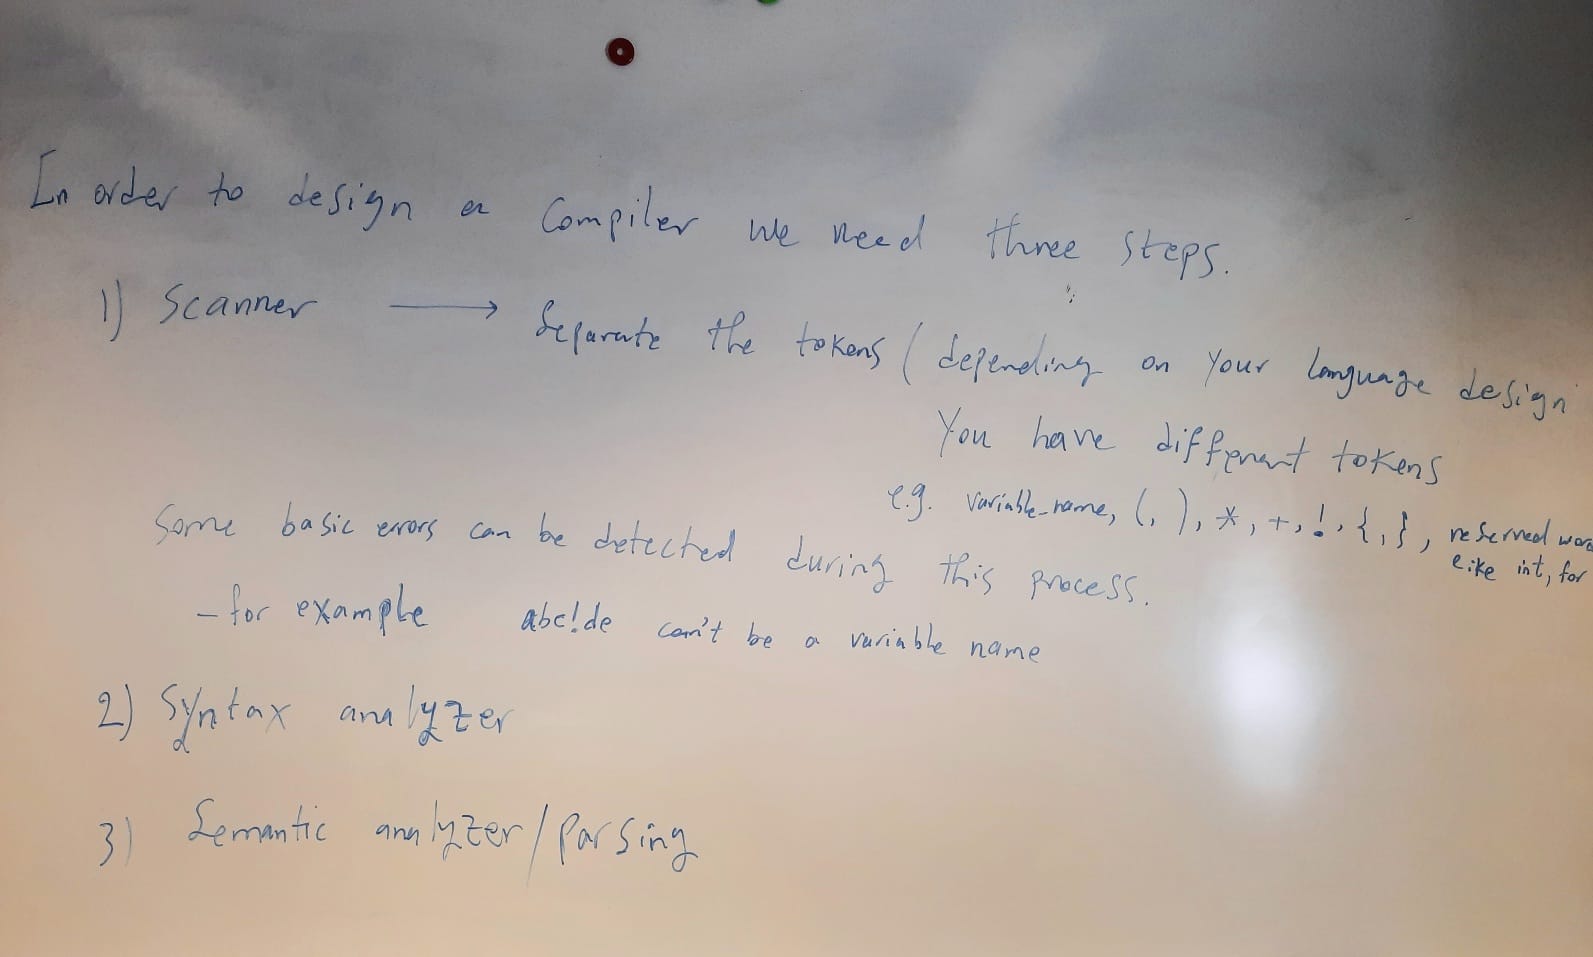 In order to design a Compiler we need three steps.
1) Scanner → Separate the tokens ( depending on your language design
You have different tokens
e.g. variable_name, (, ), *, +, !, { , }, reserved wor
like int, for
Some basic errors can be detected during this process.
- for example abc!de can't be a variable name
2) Syntax analyzer
3) Semantic analyzer / Parsing